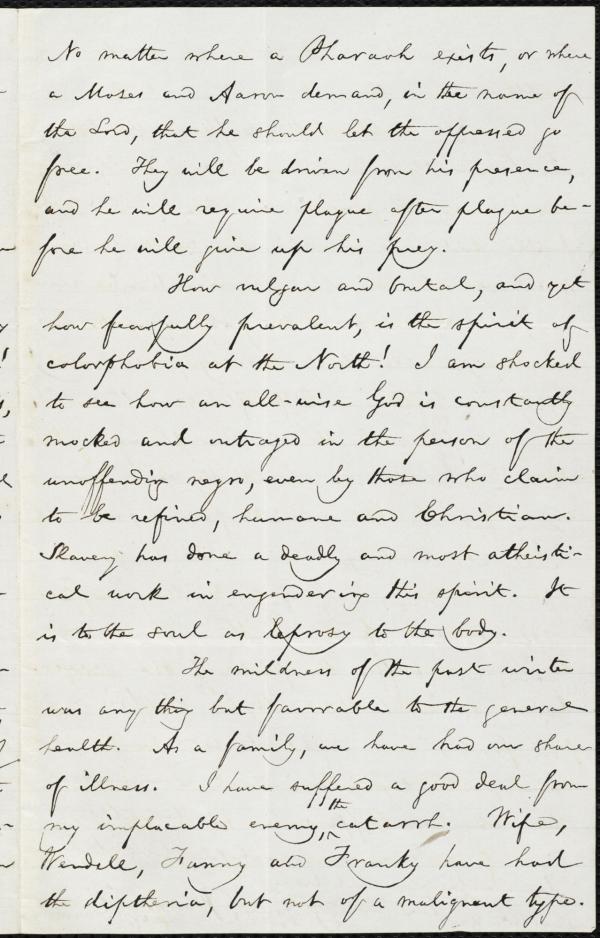 No matter where a Pharaoh exists, or where
a Moses and Aaron demand, in the name of
the Lord, that he should let the oppressed go
free. They will be driven from his presence,
and he will require plague after plague be-
fore he will give up his prey.
How vulgar and brutal, and yet
how fearfully prevalent, is the spirit of
colorphobia at the North! I am shocked
to see how an all-wise God is constantly
mocked and outraged in the person of the
unoffending negro, even by those who claim
to be refined, humane and Christian.
Slavery has done a deadly and most atheisti-
cal work in engendering this spirit. It
is to the soul as leprosy to the body.
The mildness of the past winter
was any thing but favorable to the general
health. As a family, we have had our share
of illness. I have suffered a good deal from
my implacable enemy, the catarrh. Wife,
Wendell, Fanny and Franky have had
the diptheria, but not of a malignant type.